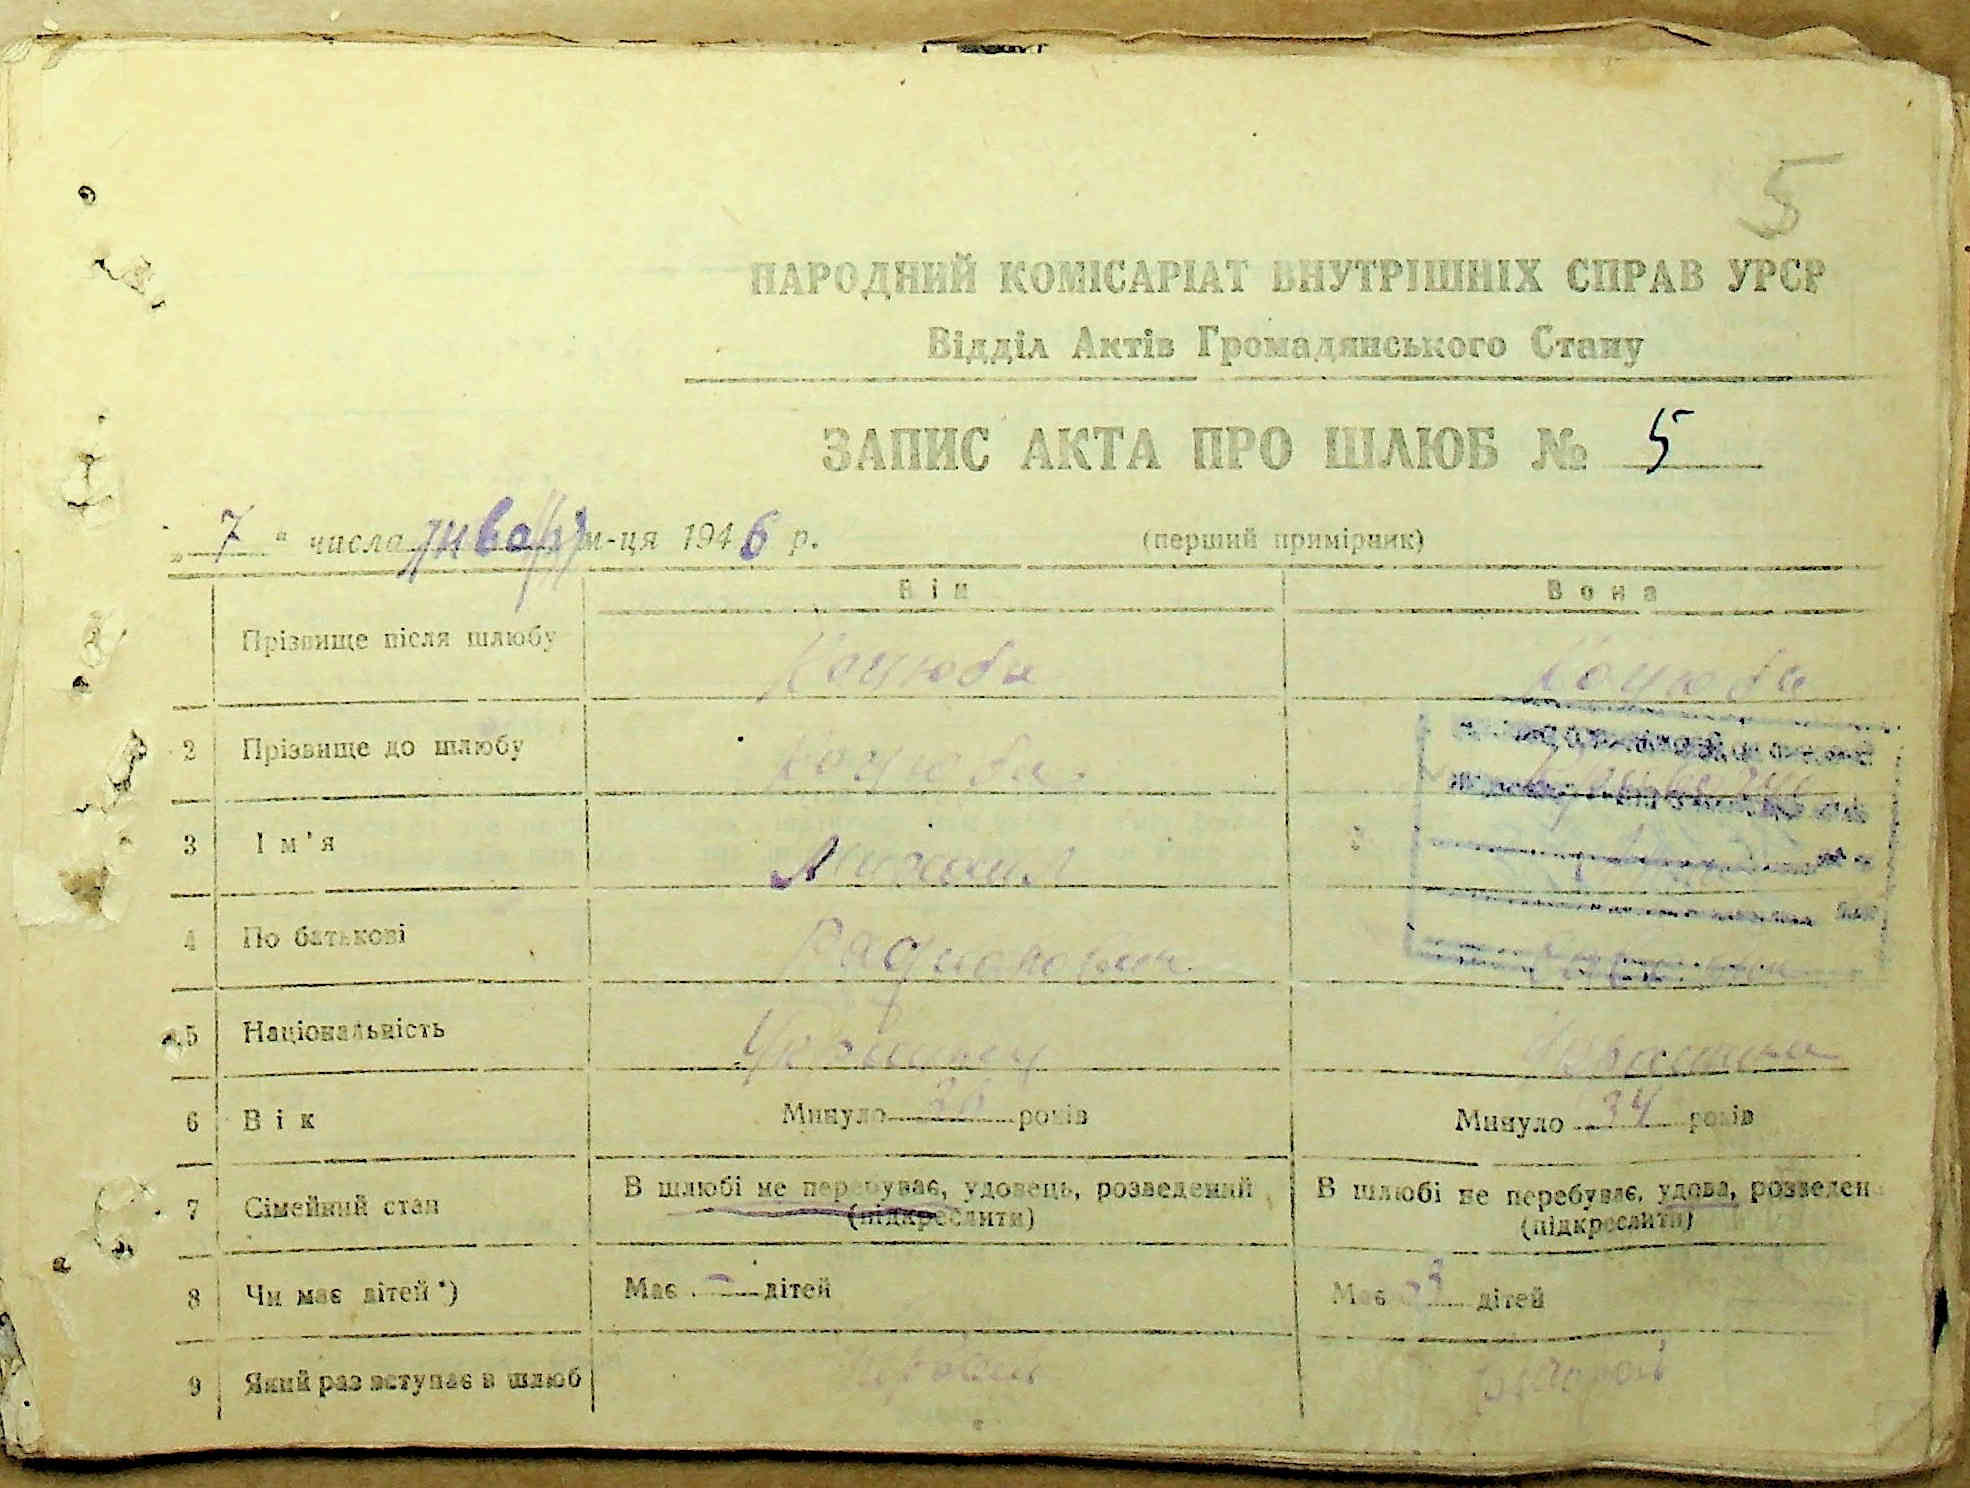 5
НАРОДНИЙ КОМІСАРІАТ ВНУТРІШНІХ СПРАВ УРСР
Відділ Актів Громадянського Стану
ЗАПИС АКТА ПРО ШЛЮБ № 5
„ 7 “ числа января м-ця 1946 р. (перший примірник)
Він Вона
Прізвище після шлюбу Коцюба Коцюба
2 Прізвище до шлюбу Коцюба
3 Ім'я Михаил
4 По батькові Радионович
5 Національність Украинец Украинка
6 Вік Минуло років Минуло 34 років
7 Сімейний стан В шлюбі не перебуває, удовець, розведений (підкреслити) В шлюбі не перебуває, удова, розведен (підкреслити)
8 Чи має дітей *) Має — дітей Має 3 дітей
9 Який раз вступає в шлюб первый второй